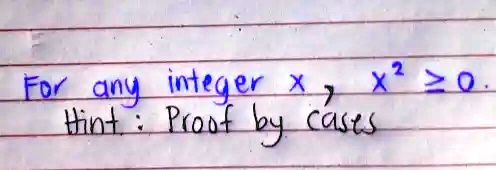 For any integer x, x² ≥ 0.
Hint : Proof by cases